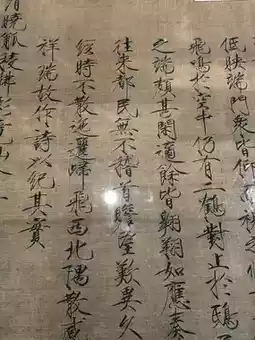 低映端門眾皆仰而視之
飛鳴於空中仍有二鶴對止於鴟
之端頗甚閑適餘皆翱翔如應奏
往來都民無不稽首瞻望歎異久
經時不散迤邐歸飛西北隅散感
祥瑞故作詩以紀其實
曉觚稜拂彩霓仙